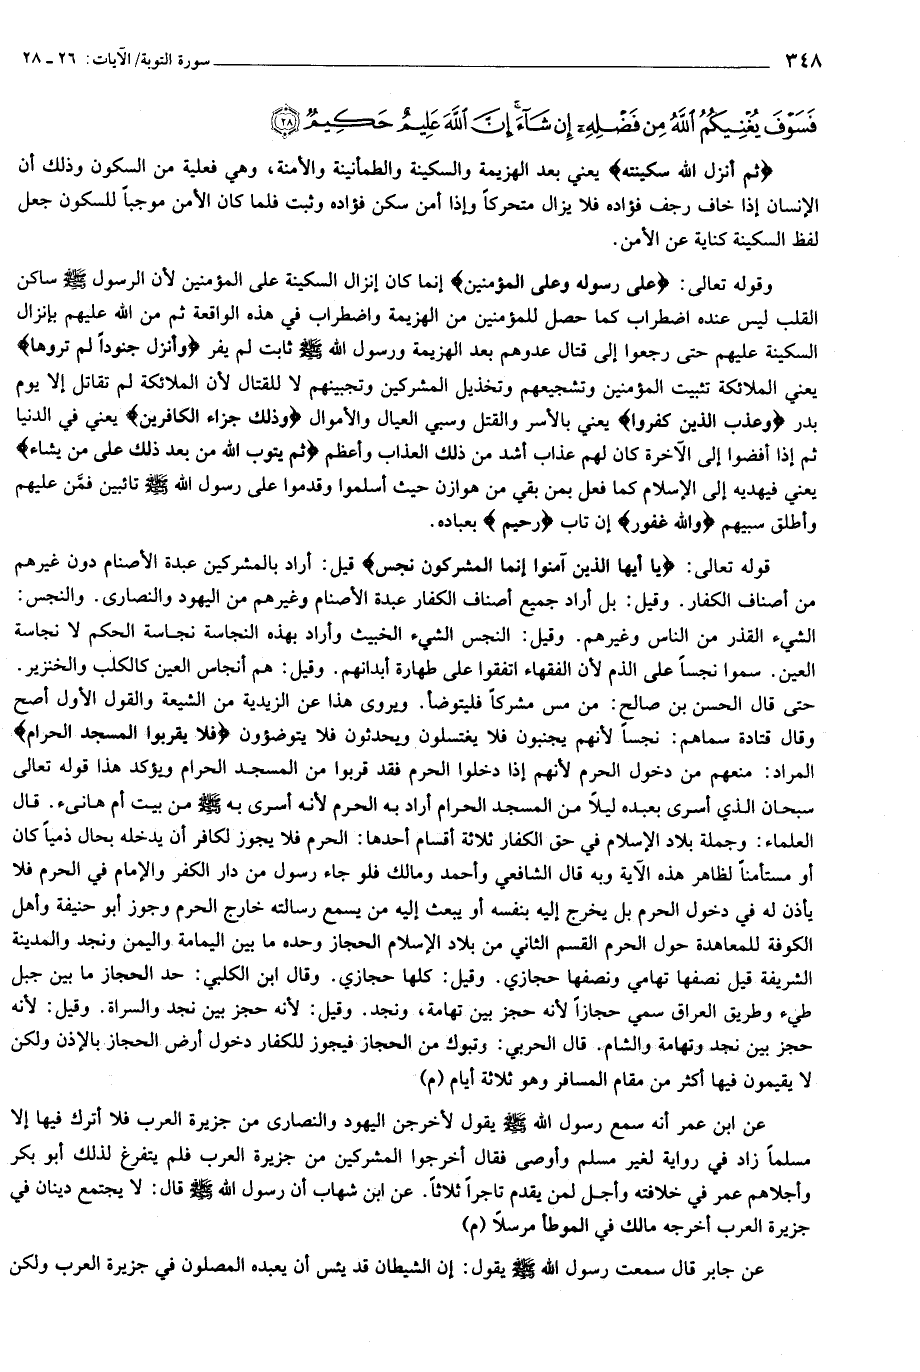 ٣٤٨ سورة التوبة/ الآيات: ٢٦ ـ ٢٨
فَسَوْفَ يُغْنِيكُمُ اللَّهُ مِن فَضْلِهِ إِن شَاءَ إِنَّ اللَّهَ عَلِيمٌ حَكِيمٌ ﴿٢٨﴾
﴿ثم أنزل الله سكينته﴾ يعني بعد الهزيمة والسكينة والطمأنينة والأمنة، وهي فعلية من السكون وذلك أن
الإنسان إذا خاف رجف فؤاده فلا يزال متحركاً وإذا أمن سكن فؤاده وثبت فلما كان الأمن موجباً للسكون جعل
لفظ السكينة كناية عن الأمن.
وقوله تعالى: ﴿على رسوله وعلى المؤمنين﴾ إنما كان إنزال السكينة على المؤمنين لأن الرسول ﷺ ساكن
القلب ليس عنده اضطراب كما حصل للمؤمنين من الهزيمة واضطراب في هذه الواقعة ثم من الله عليهم بإنزال
السكينة عليهم حتى رجعوا إلى قتال عدوهم بعد الهزيمة ورسول الله ﷺ ثابت لم يفر ﴿وأنزل جنوداً لم تروها﴾
يعني الملائكة تثبيت المؤمنين وتشجيعهم وتخذيل المشركين وتجبينهم لا للقتال لأن الملائكة لم تقاتل إلا يوم
بدر ﴿وعذب الذين كفروا﴾ يعني بالأسر والقتل وسبي العيال والأموال ﴿وذلك جزاء الكافرين﴾ يعني في الدنيا
ثم إذا أفضوا إلى الآخرة كان لهم عذاب أشد من ذلك العذاب وأعظم ﴿ثم يتوب الله من بعد ذلك على من يشاء﴾
يعني فيهديه إلى الإسلام كما فعل بمن بقي من هوازن حيث أسلموا وقدموا على رسول الله ﷺ تائبين فمَّن عليهم
وأطلق سبيهم ﴿والله غفور﴾ إن تاب ﴿رحيم﴾ بعباده.
قوله تعالى: ﴿يا أيها الذين آمنوا إنما المشركون نجس﴾ قيل: أراد بالمشركين عبدة الأصنام دون غيرهم
من أصناف الكفار. وقيل: بل أراد جميع أصناف الكفار عبدة الأصنام وغيرهم من اليهود والنصارى. والنجس:
الشيء القذر من الناس وغيرهم. وقيل: النجس الشيء الخبيث وأراد بهذه النجاسة نجاسة الحكم لا نجاسة
العين. سموا نجساً على الذم لأن الفقهاء اتفقوا على طهارة أبدانهم. وقيل: هم أنجاس العين كالكلب والخنزير.
حتى قال الحسن بن صالح: من مس مشركاً فليتوضأ. ويروى هذا عن الزيدية من الشيعة والقول الأول أصح
وقال قتادة سماهم: نجساً لأنهم يجنبون فلا يغتسلون ويحدثون فلا يتوضؤون ﴿فلا يقربوا المسجد الحرام﴾
المراد: منعهم من دخول الحرم لأنهم إذا دخلوا الحرم فقد قربوا من المسجد الحرام ويؤكد هذا قوله تعالى
سبحان الذي أسرى بعبده ليلاً من المسجد الحرام أراد به الحرم لأنه أسرى به ﷺ من بيت أم هانىء. قال
العلماء: وجملة بلاد الإسلام في حق الكفار ثلاثة أقسام أحدها: الحرم فلا يجوز لكافر أن يدخله بحال ذمياً كان
أو مستأمناً لظاهر هذه الآية وبه قال الشافعي وأحمد ومالك فلو جاء رسول من دار الكفر والإمام في الحرم فلا
يأذن له في دخول الحرم بل يخرج إليه بنفسه أو يبعث إليه من يسمع رسالته خارج الحرم وجوز أبو حنيفة وأهل
الكوفة للمعاهدة حول الحرم القسم الثاني من بلاد الإسلام الحجاز وحده ما بين اليمامة واليمن ونجد والمدينة
الشريفة قيل نصفها تهامي ونصفها حجازي. وقيل: كلها حجازي. وقال ابن الكلبي: حد الحجاز ما بين جبل
طيء وطريق العراق سمي حجازاً لأنه حجز بين تهامة، ونجد. وقيل: لأنه حجز بين نجد والسراة. وقيل: لأنه
حجز بين نجد وتهامة والشام. قال الحربي: وتبوك من الحجاز فيجوز للكفار دخول أرض الحجاز بالإذن ولكن
لا يقيمون فيها أكثر من مقام المسافر وهو ثلاثة أيام (م)
عن ابن عمر أنه سمع رسول الله ﷺ يقول لأخرجن اليهود والنصارى من جزيرة العرب فلا أترك فيها إلا
مسلماً زاد في رواية لغير مسلم وأوصى فقال أخرجوا المشركين من جزيرة العرب فلم يتفرغ لذلك أبو بكر
وأجلاهم عمر في خلافته وأجل لمن يقدم تاجراً ثلاثاً. عن ابن شهاب أن رسول الله ﷺ قال: لا يجتمع دينان في
جزيرة العرب أخرجه مالك في الموطأ مرسلاً (م)
عن جابر قال سمعت رسول الله ﷺ يقول: إن الشيطان قد يئس أن يعبده المصلون في جزيرة العرب ولكن